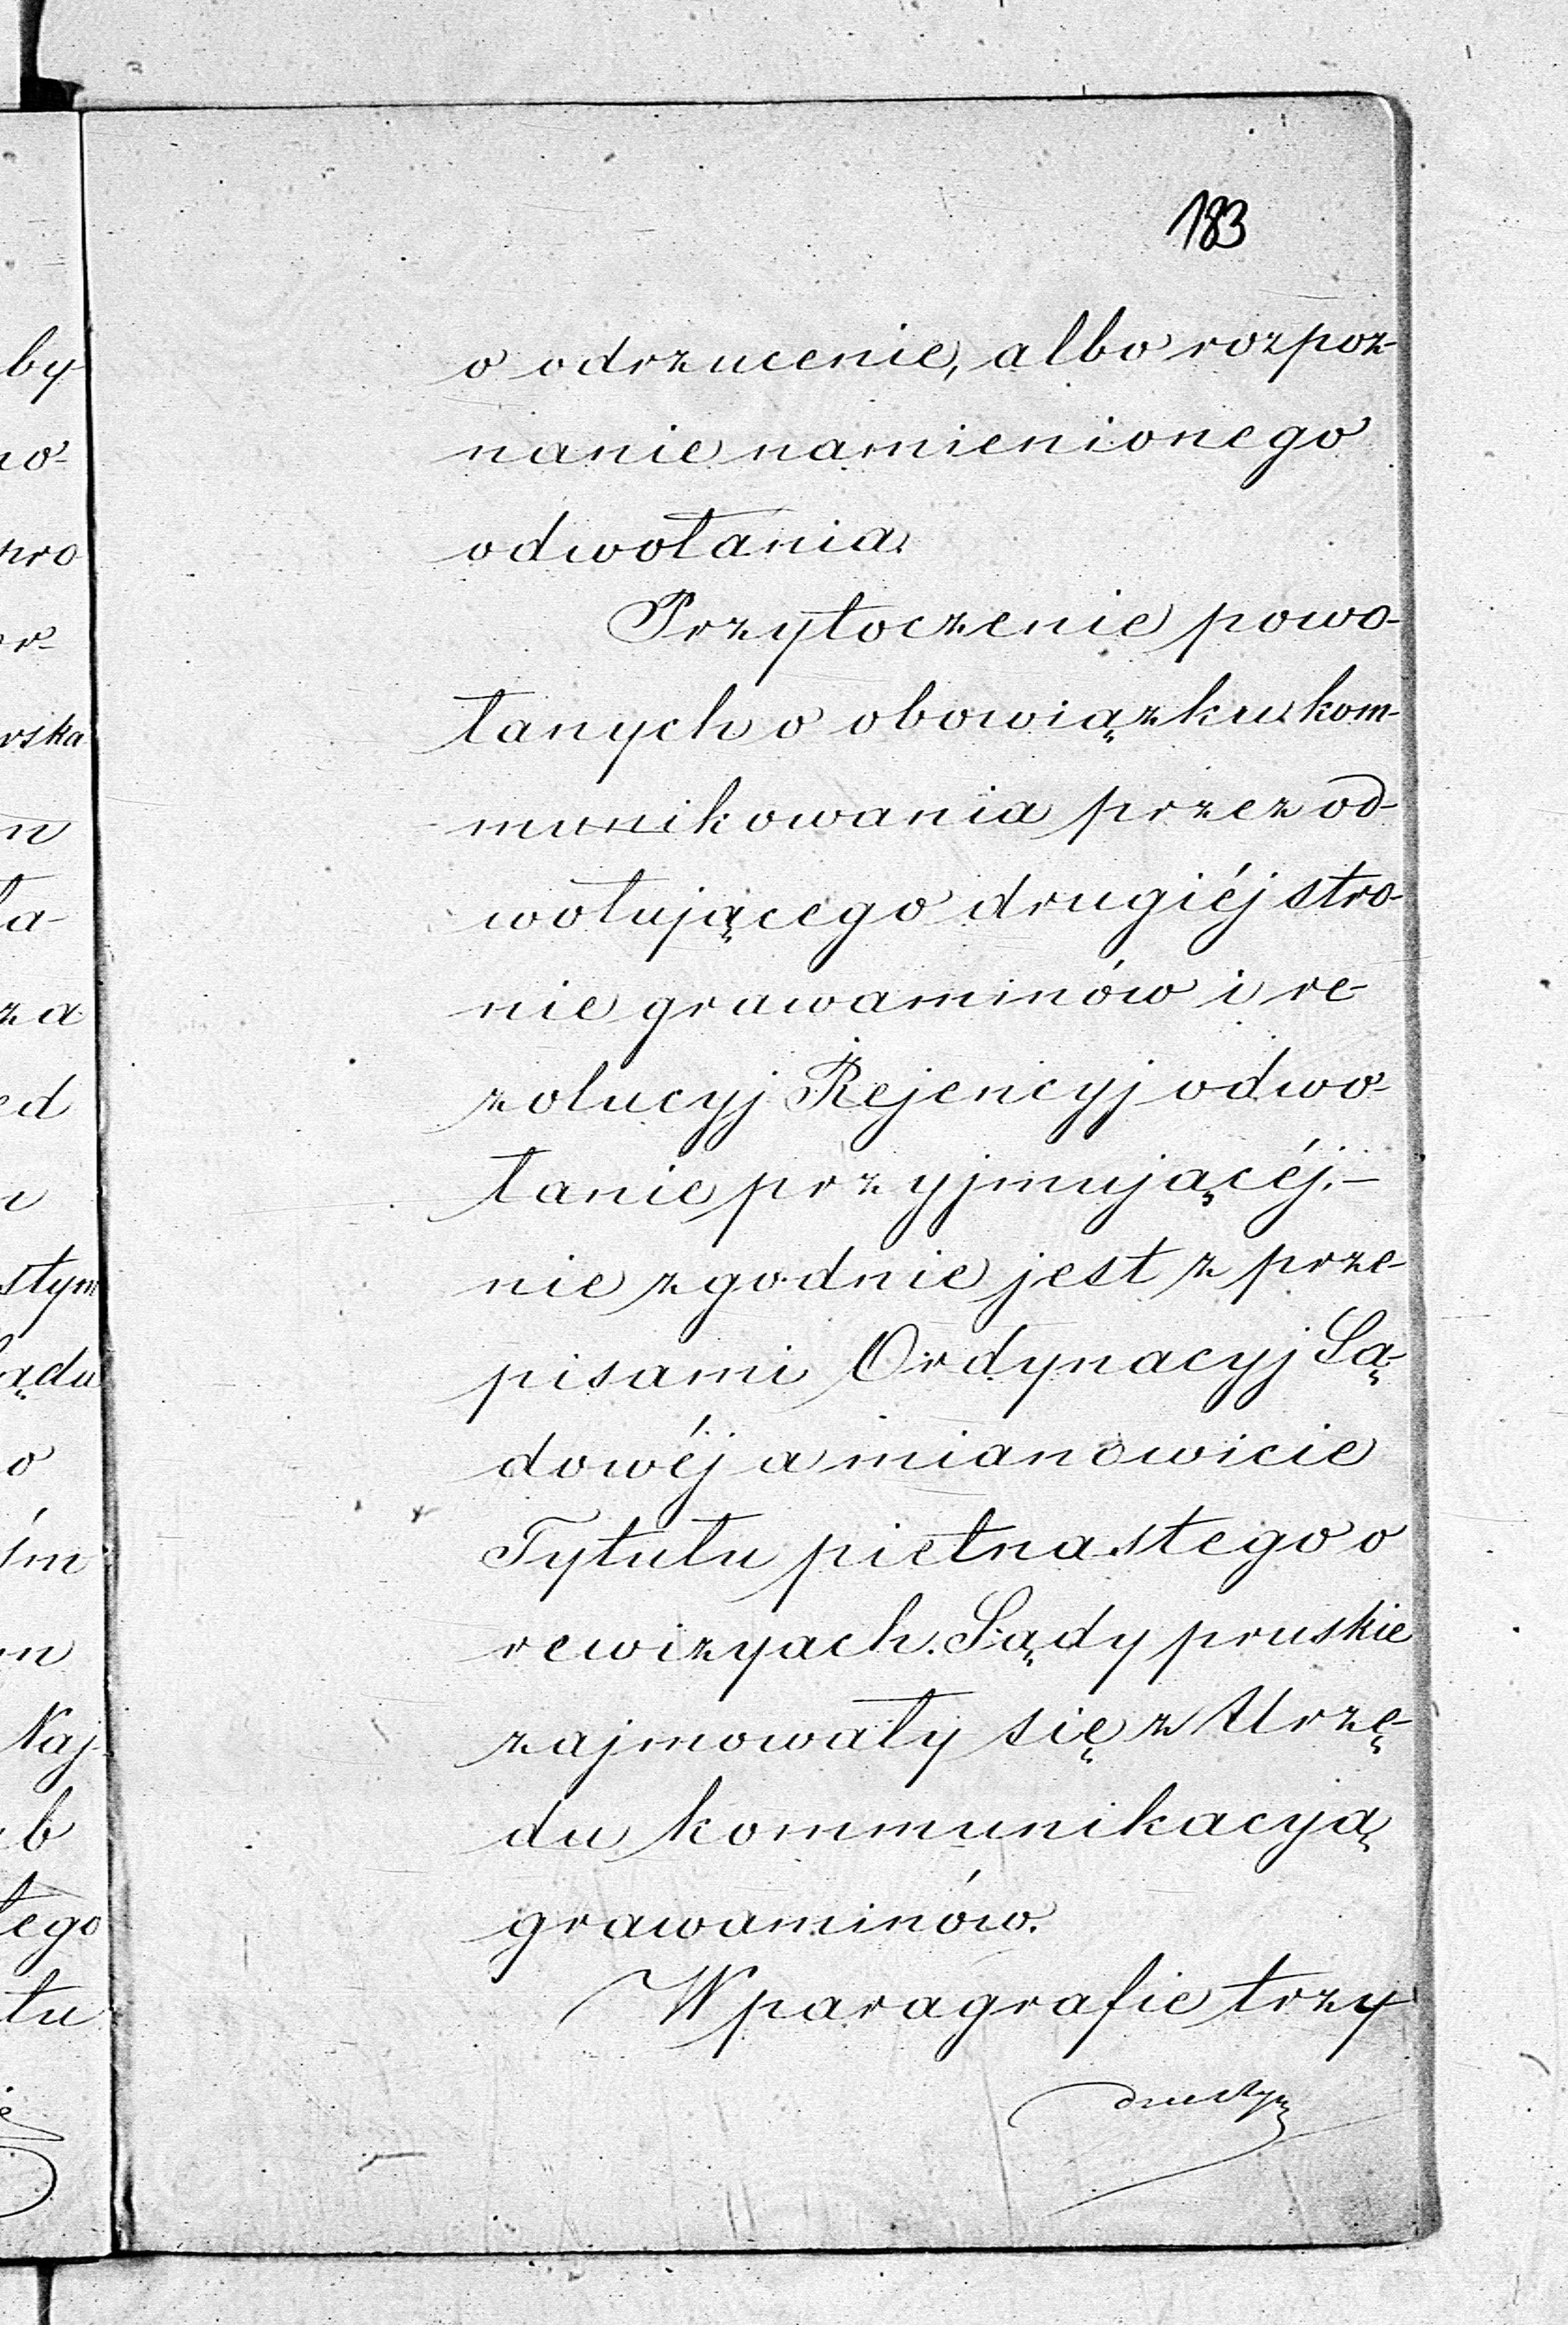 183
o odrzucenie, albo rozpoz-
nanie namienionego
odwołania.
Przytoczenie powo-
łanych o obowiązku kom-
munikowania przez od-
wołującego drugiéj stro-
nie grawaminów i re-
zolucyj Rejencyj odwo-
łanie przyjmującéj. —
nie zgodnie jest z prze-
pisami Ordynacyj Są-
dowéj a mianowicie
Tytułu pietnastego o
rewizyach. Sądy pruskie
zajmowały się z Urzę-
du kommunikacyą
grawaminów.
W paragrafie trzy
dziestym
by
no-
pro
or-
rska
n
ła-
za
ed
stym
ądu
o
ém
m
Naj-
b
tego
tu